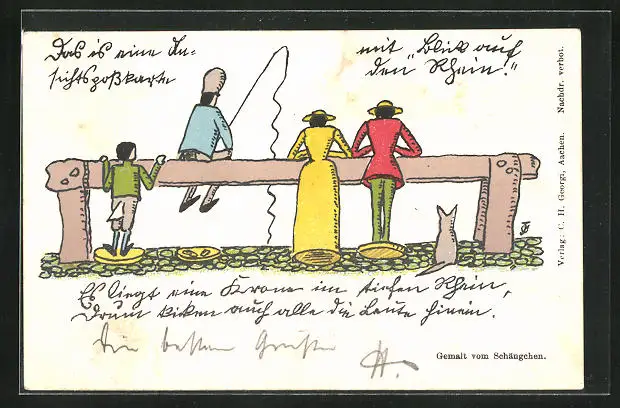 Das is eine An-
sichtspoßkarte
mit „Blick auf
den Rhein!"
Es liegt eine Krone im tiefen Rhein,
Drum kiken auch alle die Leute hinein.
Die besten Grüße
H.
Gemalt vom Schängchen.
Verlag: C. H. Georgi, Aachen. Nachdr. verbot.